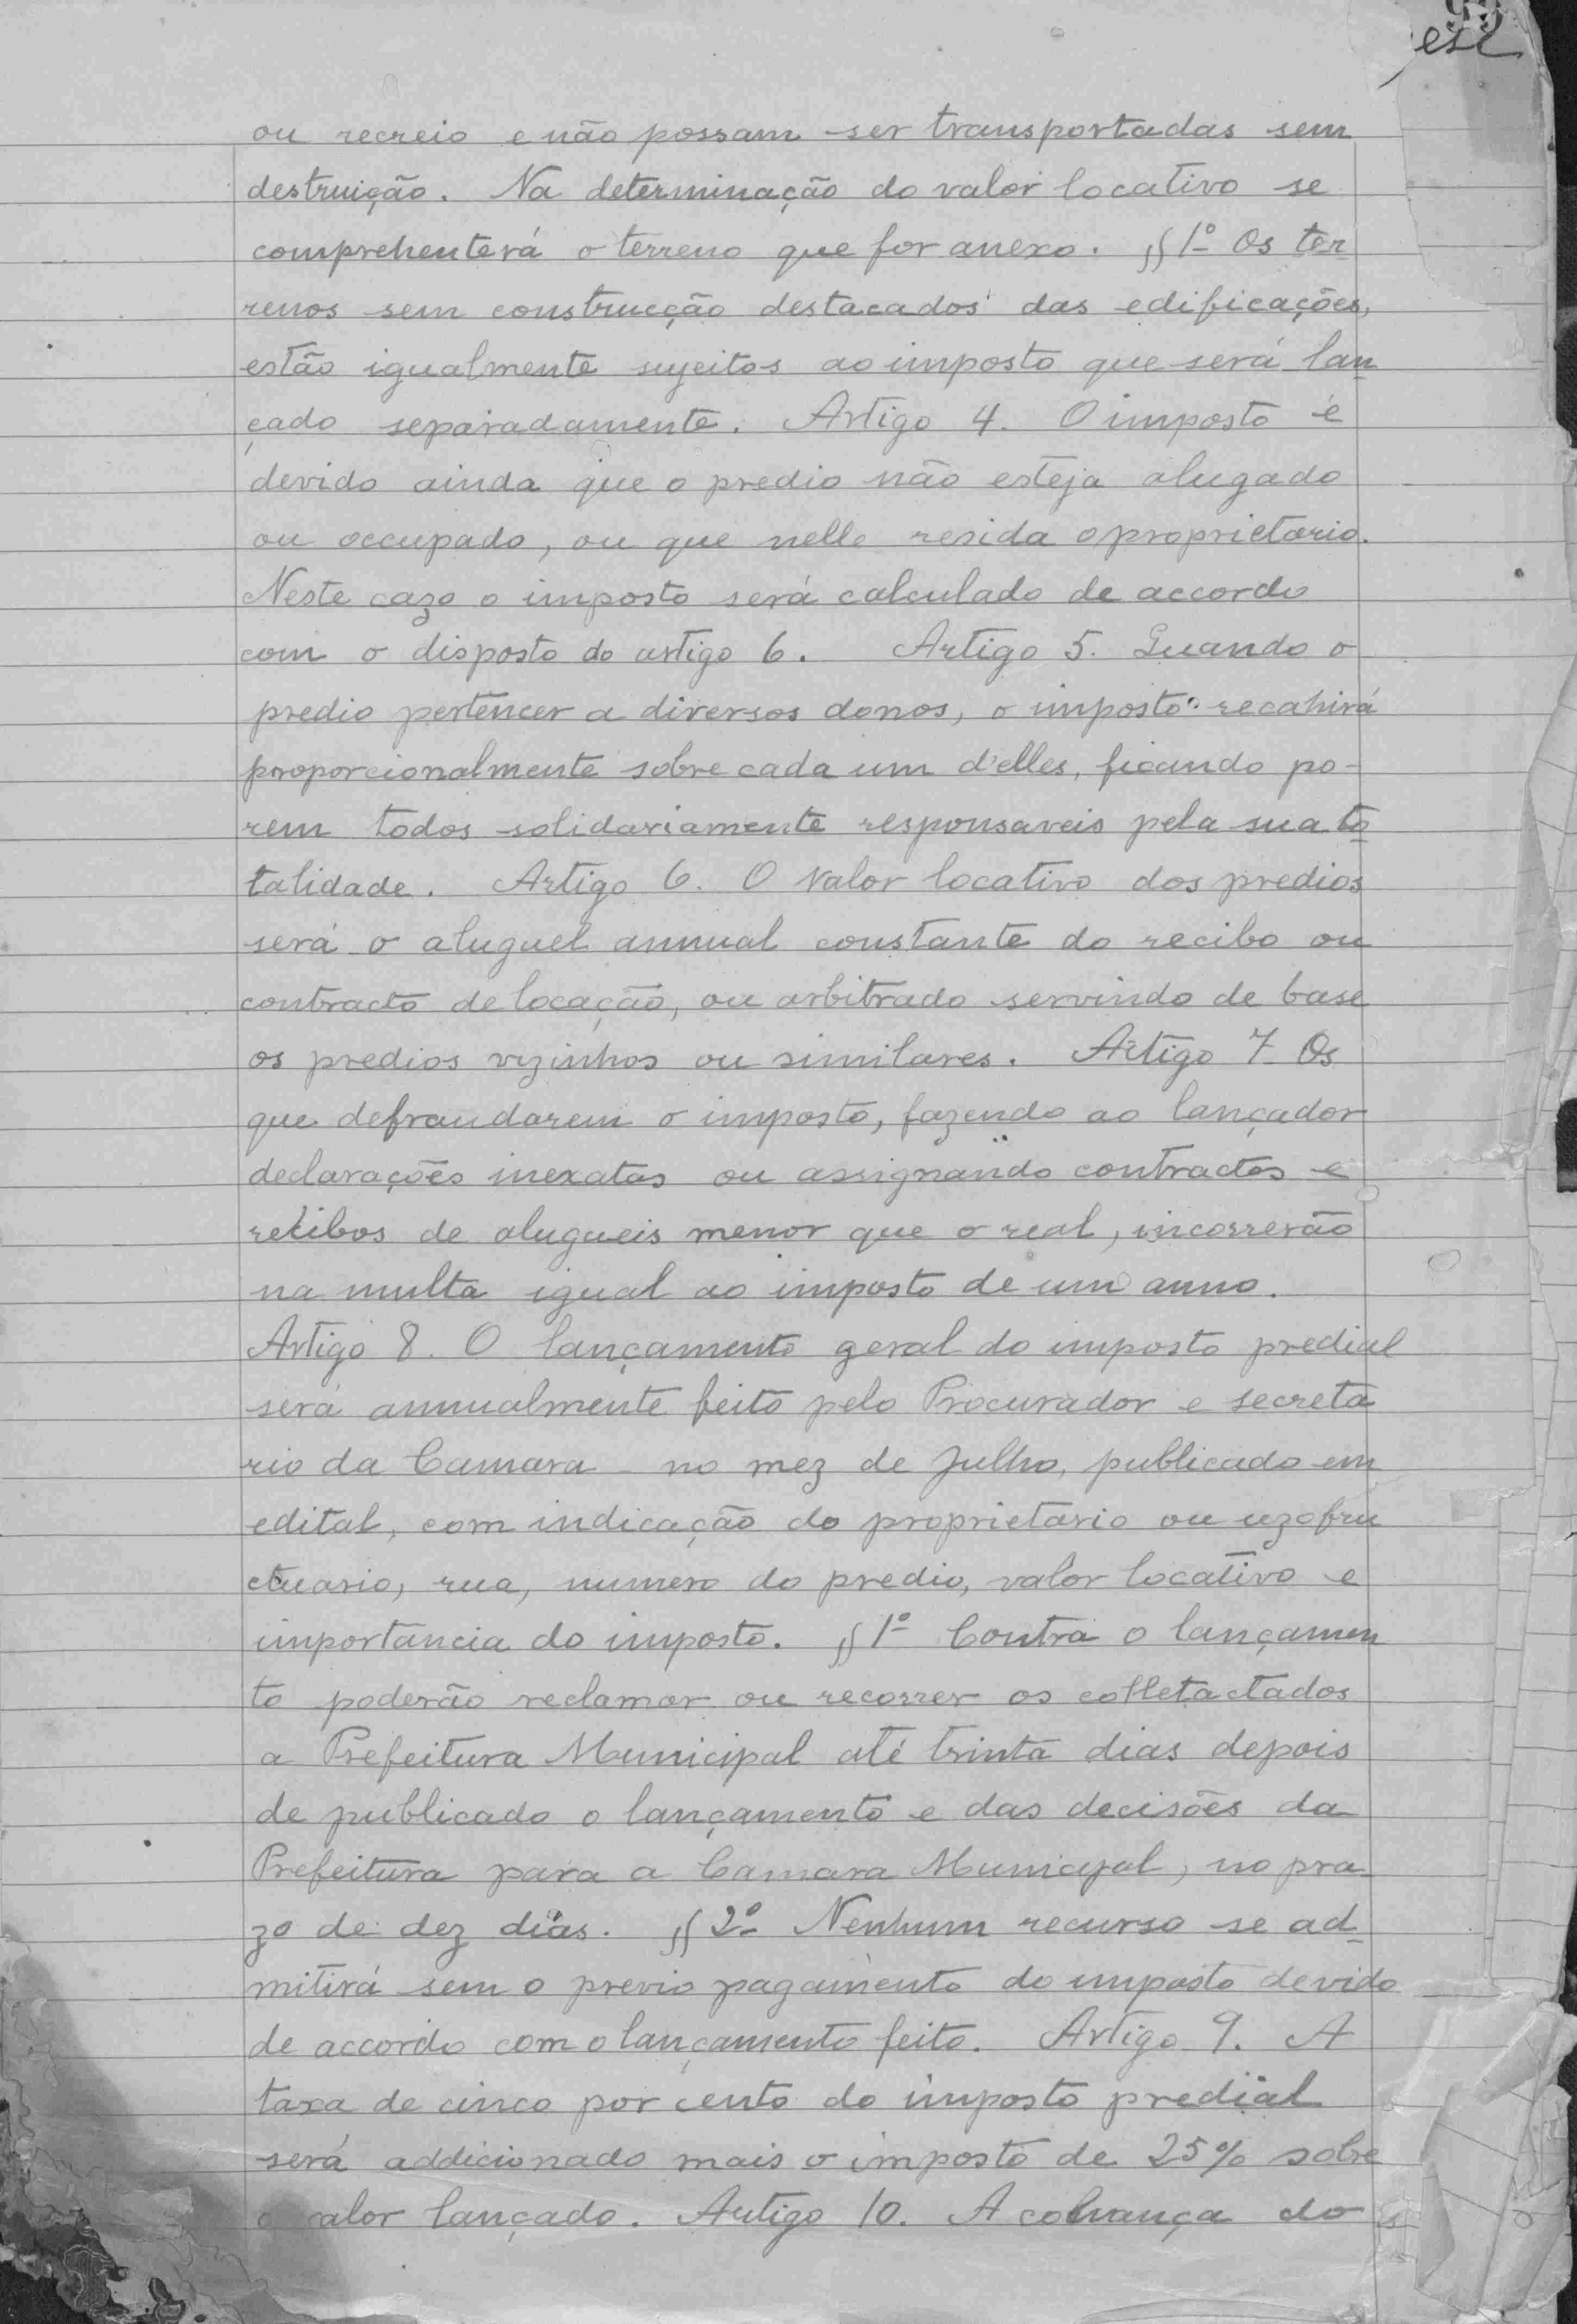 ou recreio e não possam ser transportadas sem
destruição. Na determinação do valor locativo se
comprehenterá o terreno que for anexo. §§ 1º Os ter
renos sem construcção destacados das edificações,
estão igualmente sujeitos ao imposto que será lan
çado separadamente. Artigo 4. O imposto é
devido ainda que o predio não esteja alugado
ou occupado, ou que nelle resida o proprietario.
Neste cazo o imposto será calculado de accordo
com o disposto do artigo 6. Artigo 5. Quando o
predio pertencer a diversos donos, o imposto recahirá
proporcionalmente sobre cada um d'elles, ficando po-
rem todos solidariamente responsaveis pela sua to
talidade. Artigo 6. O valor locativo dos predios
será o aluguel annual constante do recibo ou
contracto de locação, ou arbitrado servindo de base
os predios vizinhos ou similares. Artigo 7 Os
que defraudarem o imposto, fazendo ao lançador
declarações inexatas ou assignando contractos e
recibos de alugueis menor que o real, incorrerão
na multa igual ao imposto de um anno.
Artigo 8. O lançamento geral do imposto predial
será annualmente feito pelo Procurador e secreta
rio da Camara no mez de Julho, publicado em
edital, com indicação do proprietario ou uzofru
ctuario, rua, numero do predio, valor locativo e
importancia do imposto. §§ 1º Contra o lançamen
to poderão reclamar ou recorrer os colletactados
a Prefeitura Municipal até trinta dias depois
de publicado o lançamento e das decisões da
Prefeitura para a Camara Municipal, no pra
zo de dez dias. §§ 2º Nenhum recurso se ad
mitirá sem o previo pagamento do imposto devido
de accordo com o lançamento feito. Artigo 9. A
taxa de cinco por cento do imposto predial
será addicionado mais o imposto de 25% sobre
o valor lançado. Artigo 10. A cobrança do